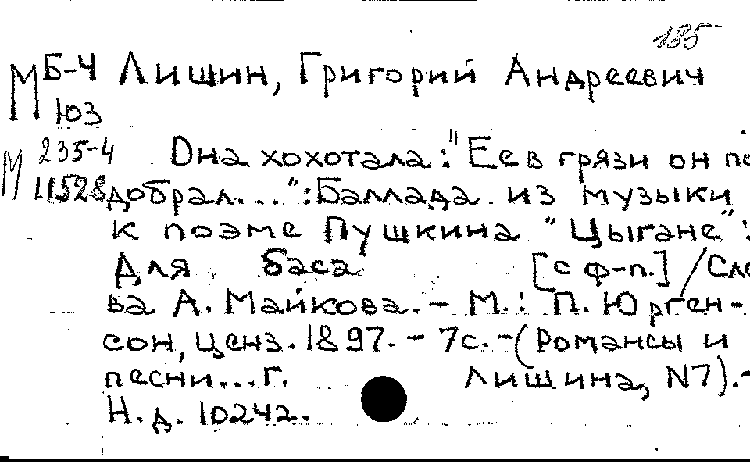 185
М Б-4 Лишин, Григорий Андреевич
103
М 235-4 Она хохотала: "Ее в грязи он по
11528 добрал...": Баллада из музыки
к поэме Пушкина "Цыгане":
Для баса [с ф-п.] / Сло
ва А. Майкова. - М.: П. Юрген-
сон, ценз. 1897. - 7с. - (Романсы и
песни... Г. Лишина, N7). -
Н.д. 10242.